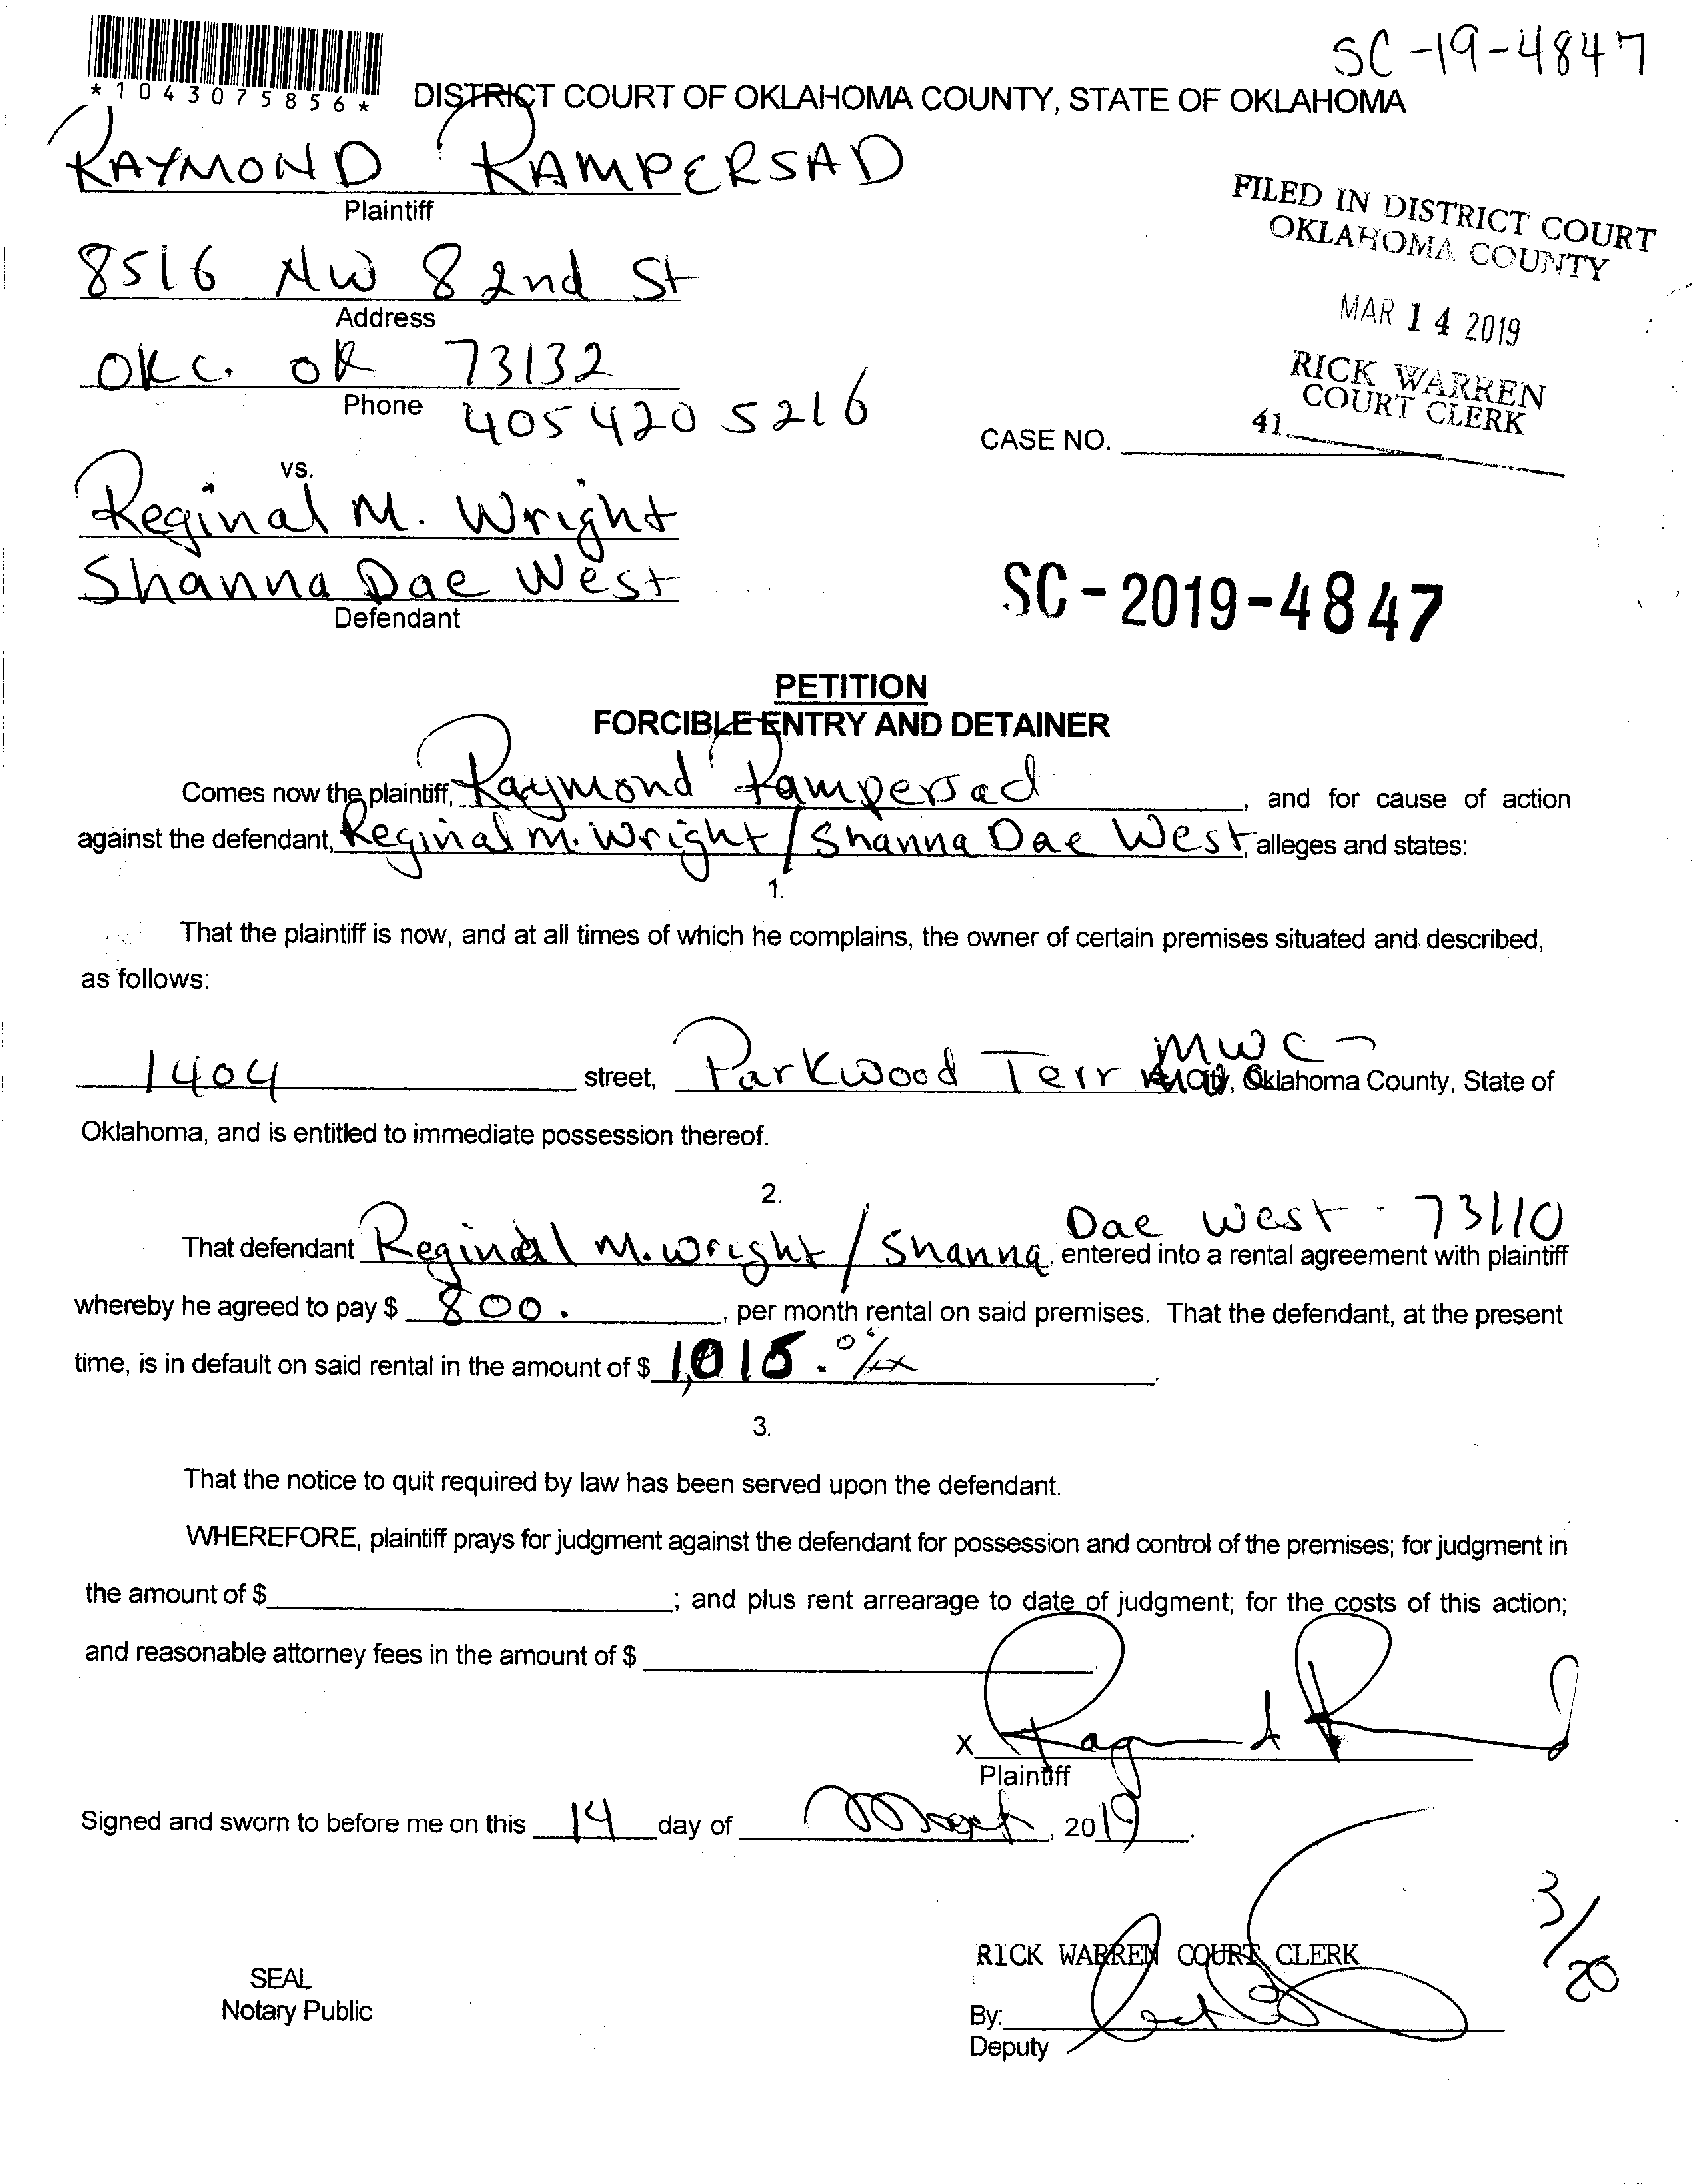 SC-19-4847
*1043075856*
DISTRICT COURT OF OKLAHOMA COUNTY, STATE OF OKLAHOMA
RAYMOND RAMPERSAD
Plaintiff
FILED IN DISTRICT COURT
OKLAHOMA COUNTY
8516 NW 82nd St
Address
MAR 14 2019
OKC. OK 73132
RICK WARREN
COURT CLERK
Phone 405 420 5216
41
CASE NO.
vs.
Reginal M. Wright
Shanna Dae West
Defendant
SC-2019-4847
PETITION
FORCIBLE ENTRY AND DETAINER
Comes now the plaintiff, Raymond Rampersad, and for cause of action
against the defendant, Reginal M. Wright / Shanna Dae West, alleges and states:
1.
That the plaintiff is now, and at all times of which he complains, the owner of certain premises situated and described,
as follows:
1404 street, Parkwood Terr MWC, Oklahoma County, State of
Oklahoma, and is entitled to immediate possession thereof.
2.
Dae West - 73110
That defendant Reginal M. Wright / Shanna, entered into a rental agreement with plaintiff
whereby he agreed to pay $ 800., per month rental on said premises. That the defendant, at the present
time, is in default on said rental in the amount of $ 1,015.
3.
That the notice to quit required by law has been served upon the defendant.
WHEREFORE, plaintiff prays for judgment against the defendant for possession and control of the premises; for judgment in
the amount of $ ; and plus rent arrearage to date of judgment; for the costs of this action;
and reasonable attorney fees in the amount of $
X
Plaintiff
Signed and sworn to before me on this 14 day of March, 2019.
3/20
RICK WARREN COURT CLERK
SEAL
Notary Public
By:
Deputy